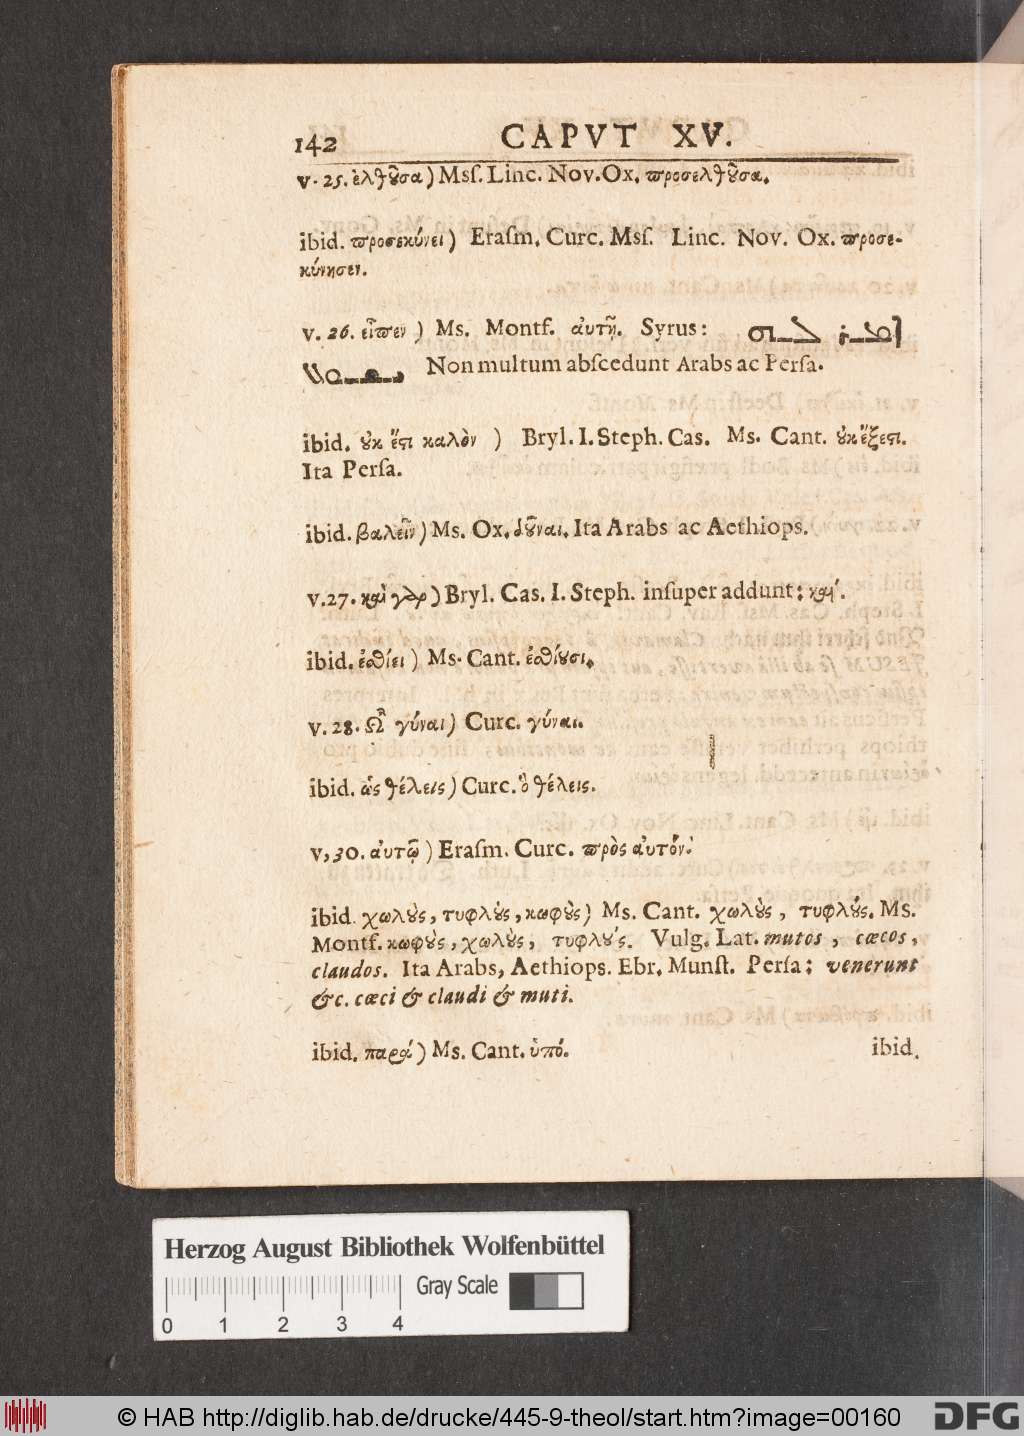 142 CAPVT XV.
v. 25. ἐλθȣ͂σα) Msſ. Linc. Nov. Ox. προσελθȣ͂σα.
ibid. προσεκύνει) Eraſm. Curc. Msſ. Linc. Nov. Ox. προσε-
κύνησεν.
v. 26. εἶπεν) Ms. Montf. ἀυτῇ. Syrus:
Non multum abſcedunt Arabs ac Perſa.
ibid. ȣ̓κ ἔϛι καλὸν) Bryl. I. Steph. Caſ. Ms. Cant. ȣ̓κ ἔξεϛι.
Ita Perſa.
ibid. βαλεῖν) Ms. Ox. δȣ͂ναι. Ita Arabs ac Aethiops.
v. 27. καὶ γὰρ) Bryl. Cas. I. Steph. inſuper addunt: καί.
ibid. ἐσθίει) Ms. Cant. ἐσθίȣσι.
v. 28. Ὦ γύναι) Curc. γύναι.
ibid. ὡς θέλεις) Curc. ὃ θέλεις.
v, 30. ἀυτῷ) Eraſm. Curc. πρὸς ἀυτόν.
ibid. χωλȣ̀ς, τυφλȣ̀ς, κωφȣ̀ς) Ms. Cant. χωλȣ̀ς, τυφλȣ́ς. Ms.
Montf. κωφȣ̀ς, χωλȣ̀ς, τυφλȣ́ς. Vulg. Lat. mutos, cæcos,
claudos. Ita Arabs, Aethiops. Ebr. Munſt. Perſa: venerunt
&c. cæci & claudi & muti.
ibid. παρὰ) Ms. Cant. ὑπό. ibid.
Herzog August Bibliothek Wolfenbüttel
Gray Scale
0 1 2 3 4
© HAB http://diglib.hab.de/drucke/445-9-theol/start.htm?image=00160 DFG